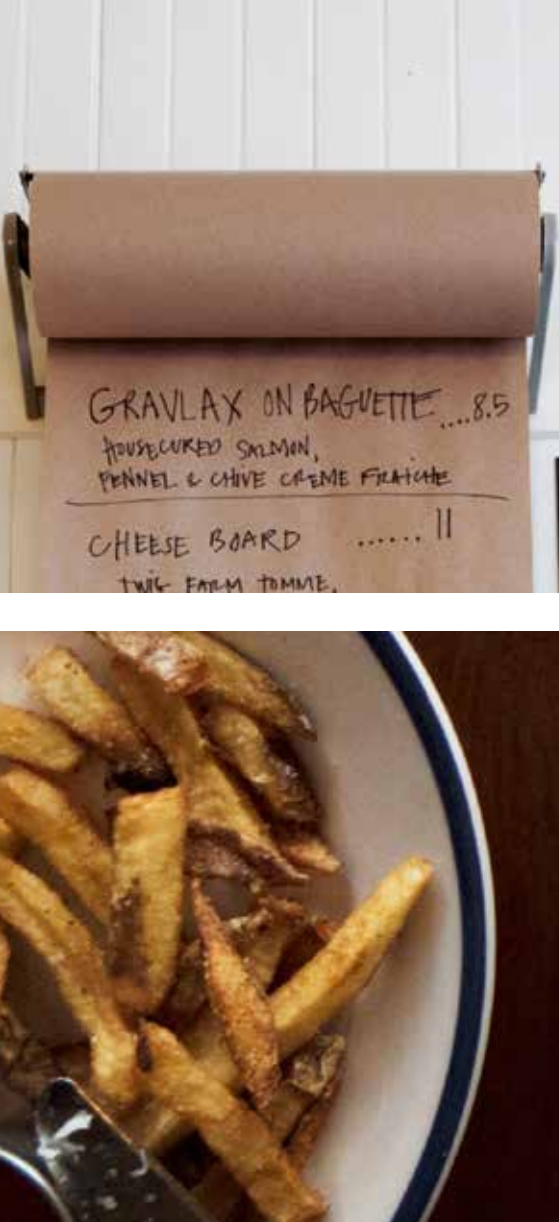 GRAVLAX ON BAGUETTE....8.5
HOUSECURED SALMON,
FENNEL & CHIVE CREME FRAICHE
CHEESE BOARD ......11
TWIG FARM TOMME,